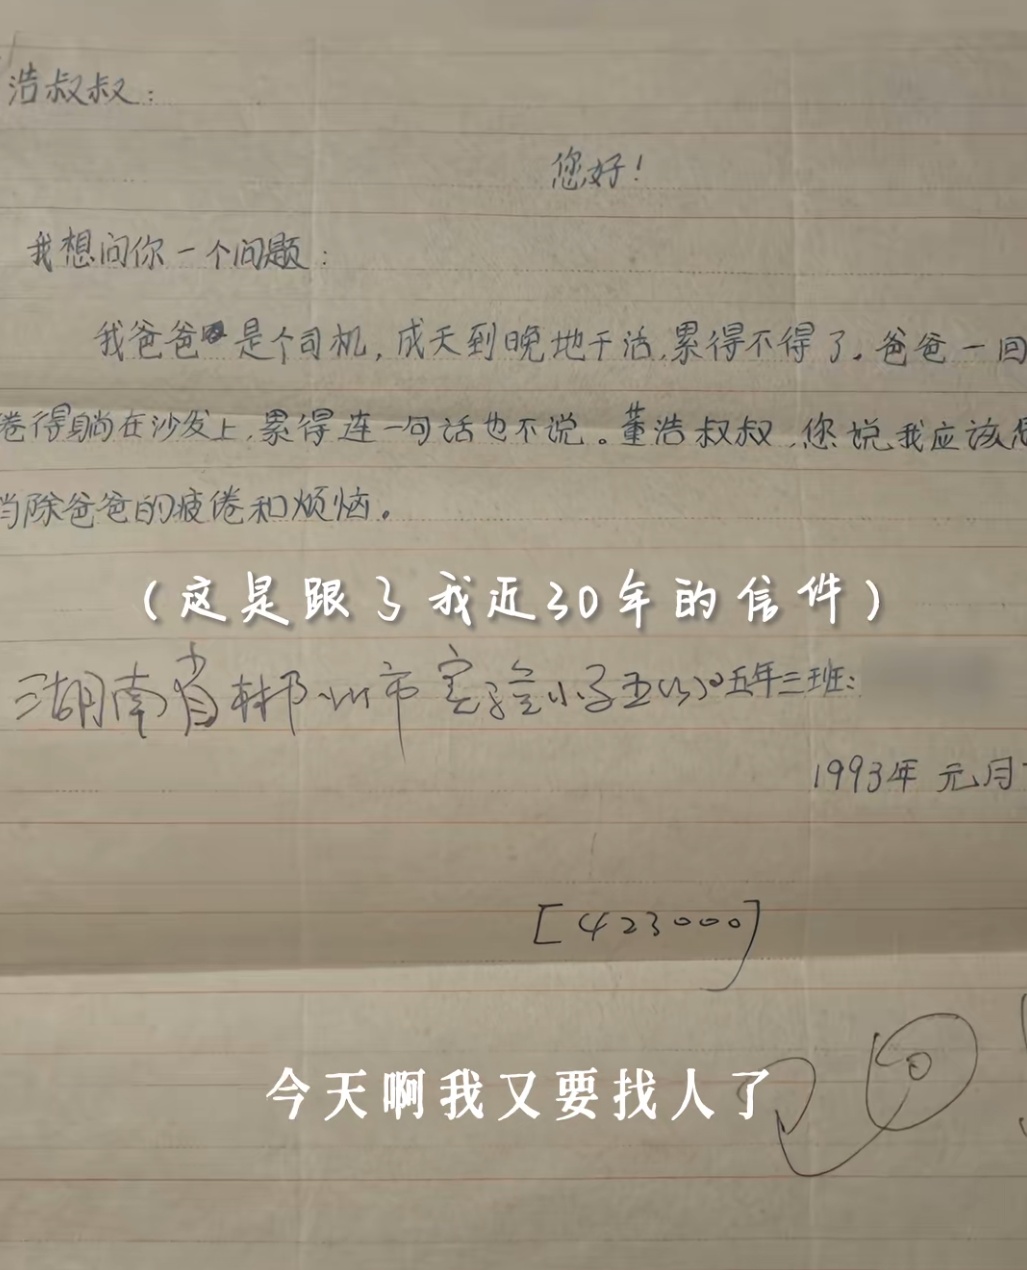 浩叔叔:
您好!
我想问你一个问题:
我爸爸是个司机,成天到晚地干活,累得不得了。爸爸一回
倦得躺在沙发上,累得连一句话也不说。董浩叔叔,您说我应该怎
当除爸爸的疲倦和烦恼。
(这是跟了我近30年的信件)
湖南省郴州市实验小学五(3)五年三班:
1993年元月
[423000]
今天啊我又要找人了